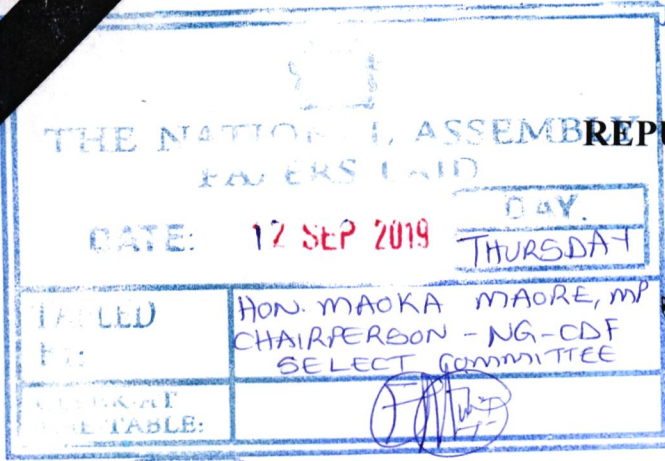 THE NATIONAL ASSEMBLY
REPU
PAPERS LAID
DATE: 12 SEP 2019
DAY.
THURSDAY
TABLED
BY:
HON. MAOKA MAORE, MP
CHAIRPERSON - NG-CDF
SELECT COMMITTEE
CLERK-AT
THE-TABLE: